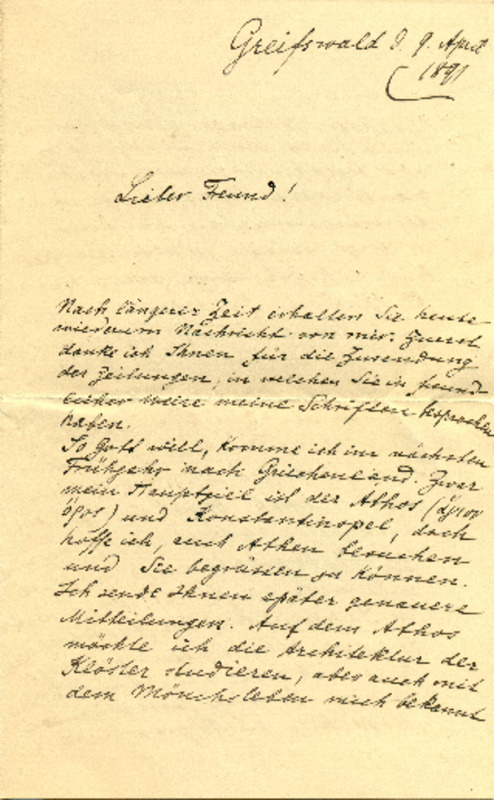 Greifswald d. 9. April
1891
Lieber Freund!
Nach längerer Zeit erhalten Sie heute
wiederum Nachricht von mir. Zuerst
danke ich Ihnen für die Zusendung
der Zeitungen, in welchen Sie in freund-
licher Weise meine Schriften besprochen
haben.
So Gott will, komme ich im nächsten
Frühjahr nach Griechenland. Zwar
mein Hauptziel ist der Athos (ἅγιον
ὄρος) und Konstantinopel, doch
hoffe ich, auch Athen besuchen
und Sie begrüssen zu können.
Ich sende Ihnen später genauere
Mitteilungen. Auf dem Athos
möchte ich die Architektur der
Klöster studieren, aber auch mit
dem Mönchsleben mich bekannt